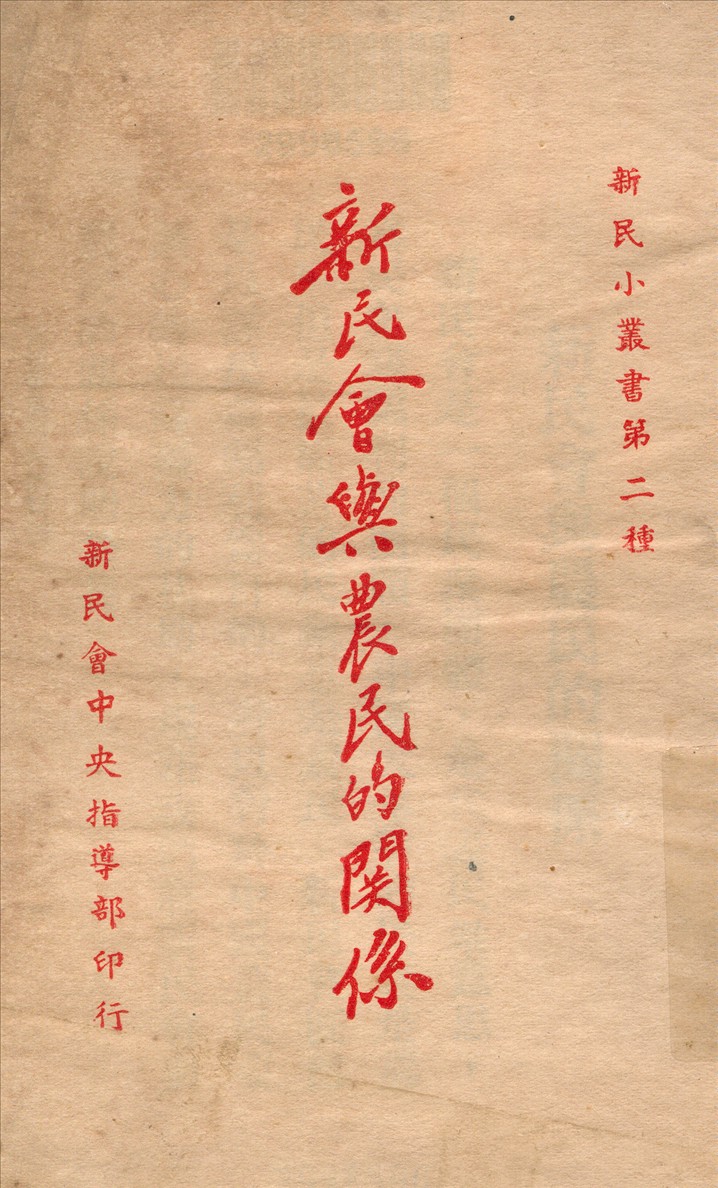 新民小叢書第二種
新民會與農民的関係
新民會中央指導部印行